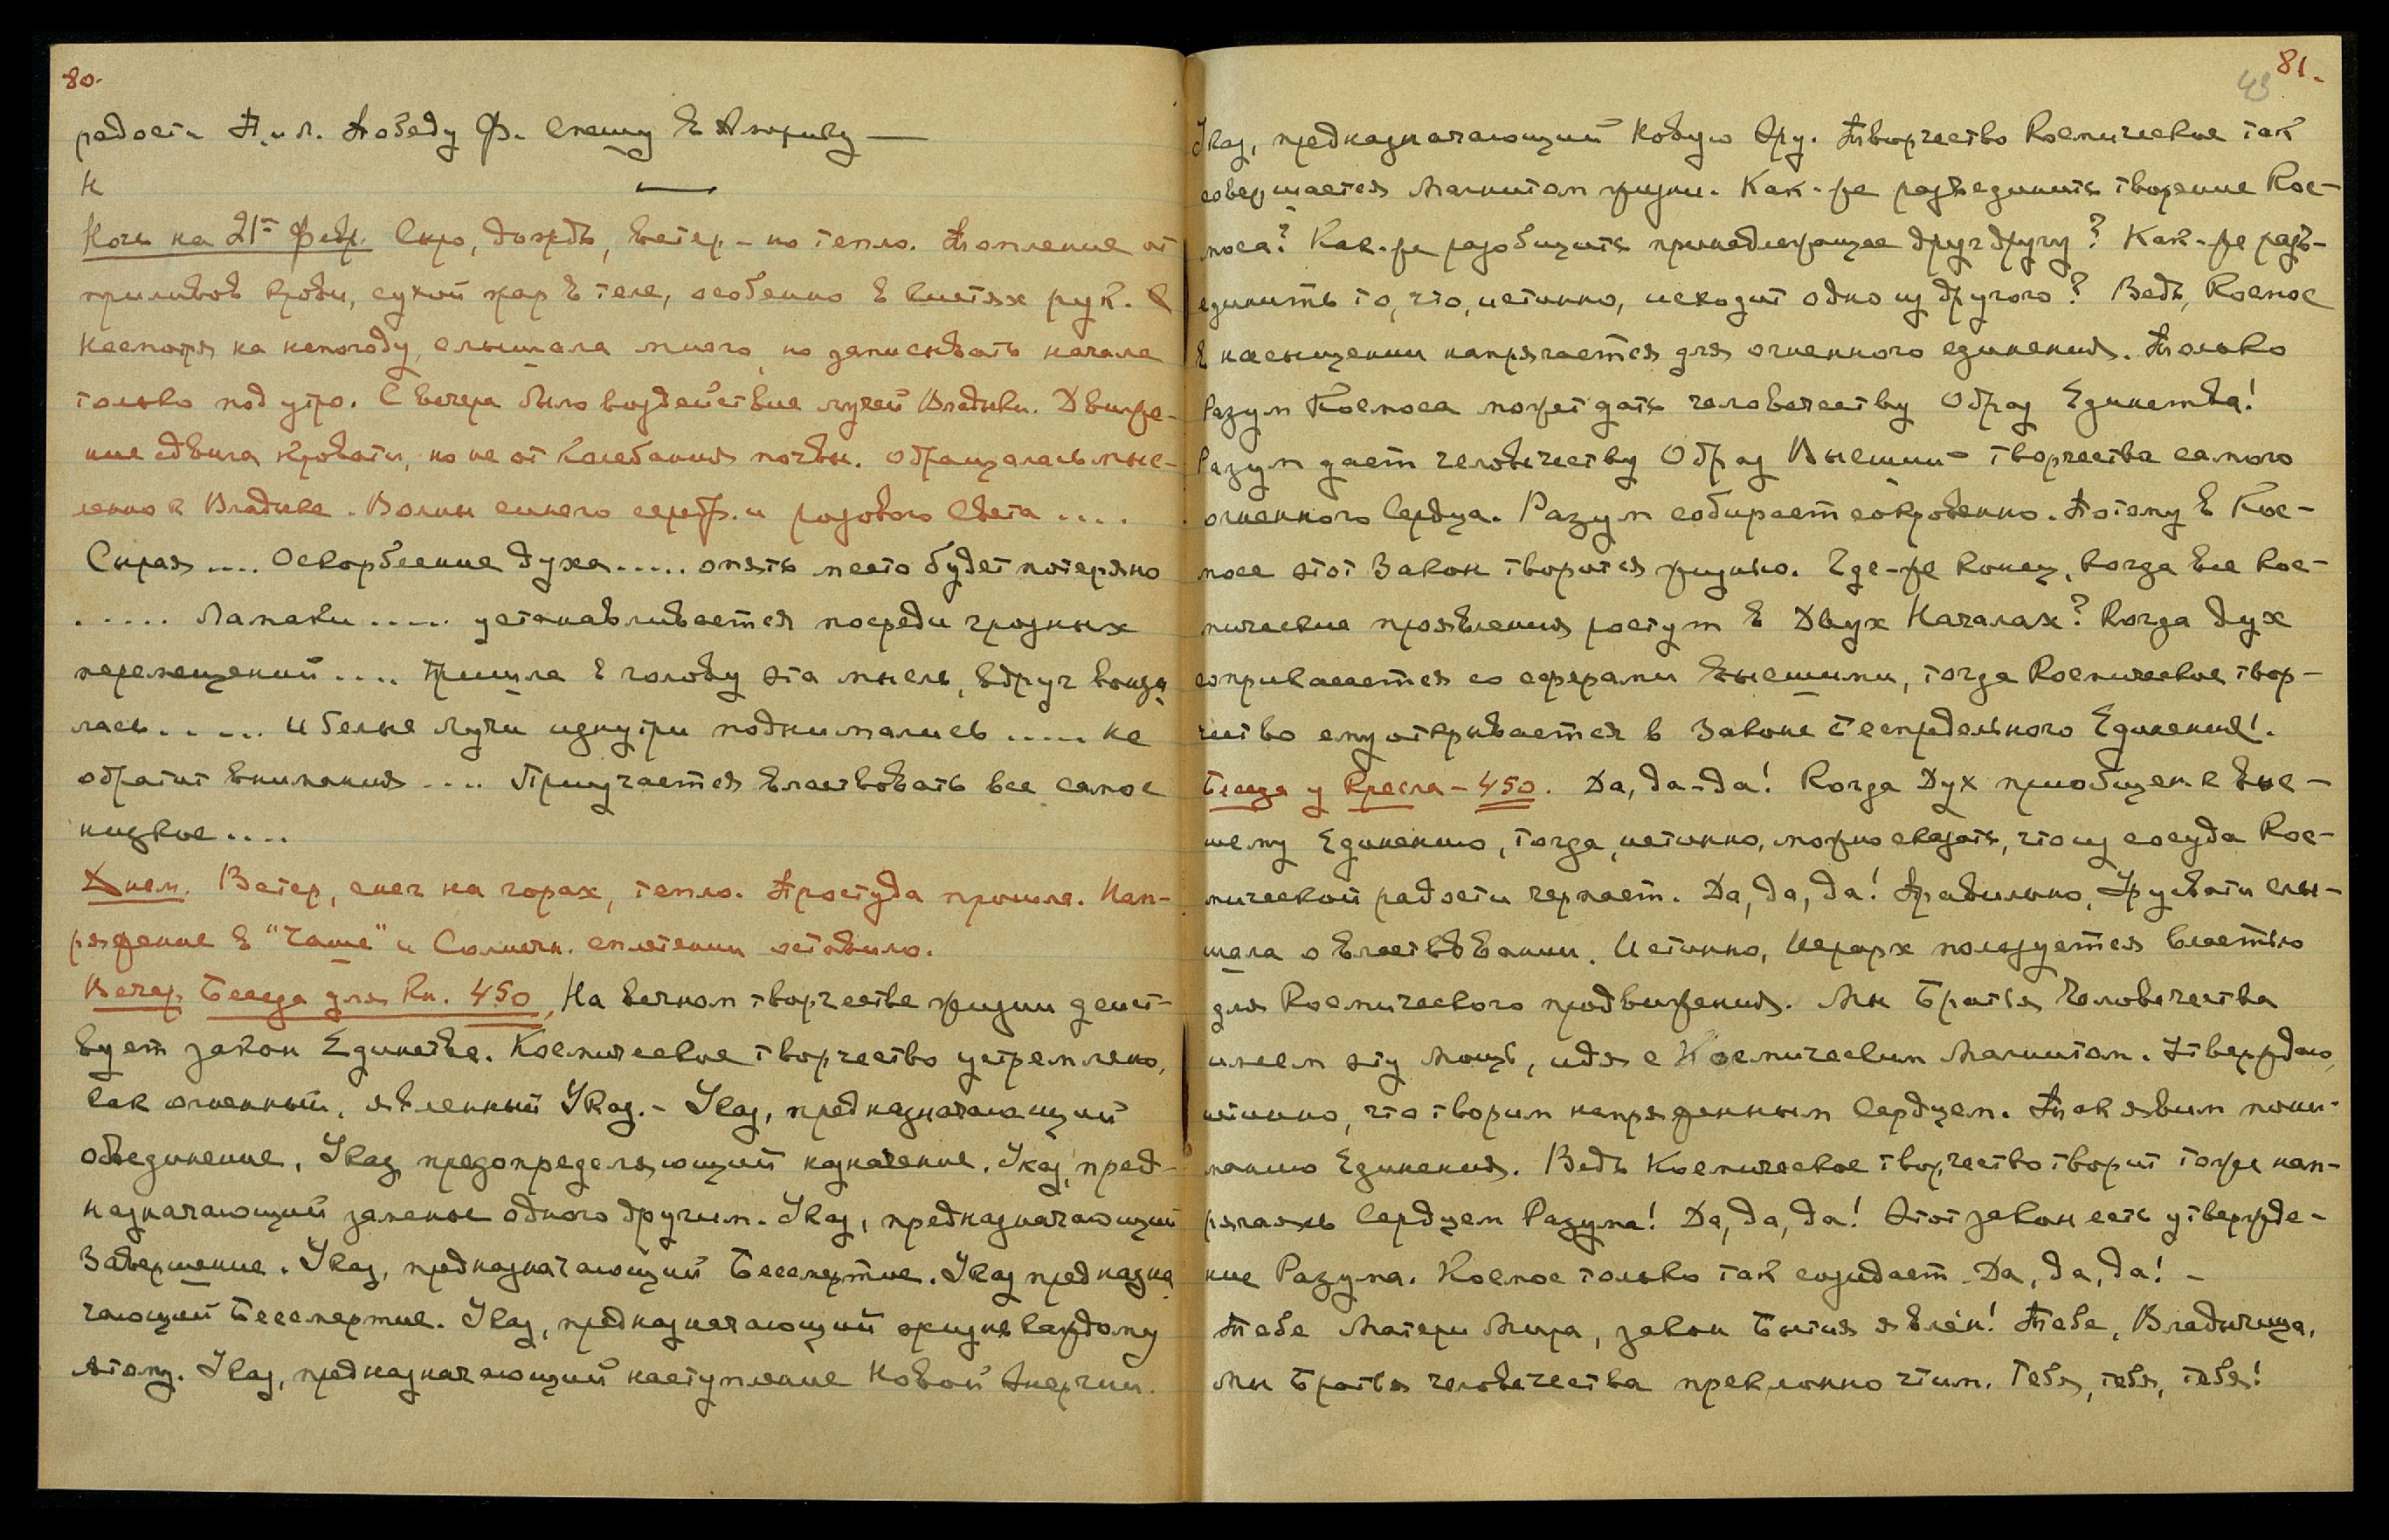 80.
радости П. и Л. Победу Ф. Спешу в Америку —
Н
Ночь на 21ое Февр. Сыро, дождь, ветер – но тепло. Томление от
приливов крови, сухой жар в теле, особенно в кистях рук.
Несмотря на непогоду, слышала много, но записывать начала
только под утро. С вечера было воздействие лучей Владыки. Движе-
ние сдвига кровати, но не от колебания почвы. Обращалась мыс-
ленно к Владыке. Волны синего серебр. и розового Света ....
Сырая .... Оскорбление духа ..... опять место будет потеряно
..... Ламаки ..... устанавливается посреди грозных
перемещений .... Пришла в голову эта мысль, вдруг вонзи
лась ..... И белые лучи изнутри поднимались ..... Не
обратит внимания .... Приучается властвовать все самое
низкое ....
Днем. Ветер, снег на горах, тепло. Простуда прошла. Нап-
ряжение в "Чаше" и Солнечн. сплетении оставило.
Вечер. Беседа для Кн. 450, На вечном творчестве жизни дейст-
вует закон Единства. Космическое творчество устремлено,
как огненный, явленный Указ. – Указ, предназначающий
объединение, Указ предопределяющий назначение. Указ, пред-
назначающий замене одного другим. Указ, предназначающий
Завершение. Указ, предназначающий Бессмертие. Указ предназна
чающий Бессмертие. Указ, предназначающий жизнь каждому
атому. Указ, предназначающий наступление Новой Энергии.
81.
43
Указ, предназначающий Новую Эру. Творчество Космическое так
совершается Магнитом жизни. Как-же разъединить творение Кос-
моса? Как-же разобщить принадлежащее друг другу? Как-же разъ-
единить то, что, истинно, исходит одно из другого? Ведь, Космос
в насыщении напрягается для огненного единения. Только
Разум Космоса может дать человечеству Образ Единства!
Разум дает человечеству Образ Высший – творчества самого
огненного Сердца. Разум собирает сокровенно. Потому в Кос-
мосе этот Закон творится жизнью. Где-же конец, когда все кос-
мические проявления растут в Двух Началах? Когда дух
соприкасается со сферами высшими, тогда Космическое твор-
чество ему открывается в Законе Беспредельного Единения!.
Беседа у Кресла – 450. Да, да-да! Когда Дух приобщен к выс-
шему Единению, тогда, истинно, можно сказать, что из сосуда Кос-
мической радости черпает. Да, да, да! Правильно, Урусвати слы-
шала о властвовании. Истинно, Иерарх пользуется властью
для Космического продвижения. Мы Братья Человечества
имеем эту мощь, идя с Космическим Магнитом. Утверждаю,
истинно, что творим напряженным Сердцем. Так явим пони-
манию Единения. Ведь Космическое творчество творит тоже нап-
рягаясь Сердцем Разума! Да, да, да! Этот закон есть утвержде-
ние Разума. Космос только так созидает. Да, да, да! –
Тебе Матери Мира, закон Бытия явлен! Тебе, Владычица,
Мы Братья человечества преклонно чтим. Тебя, тебя, тебя!